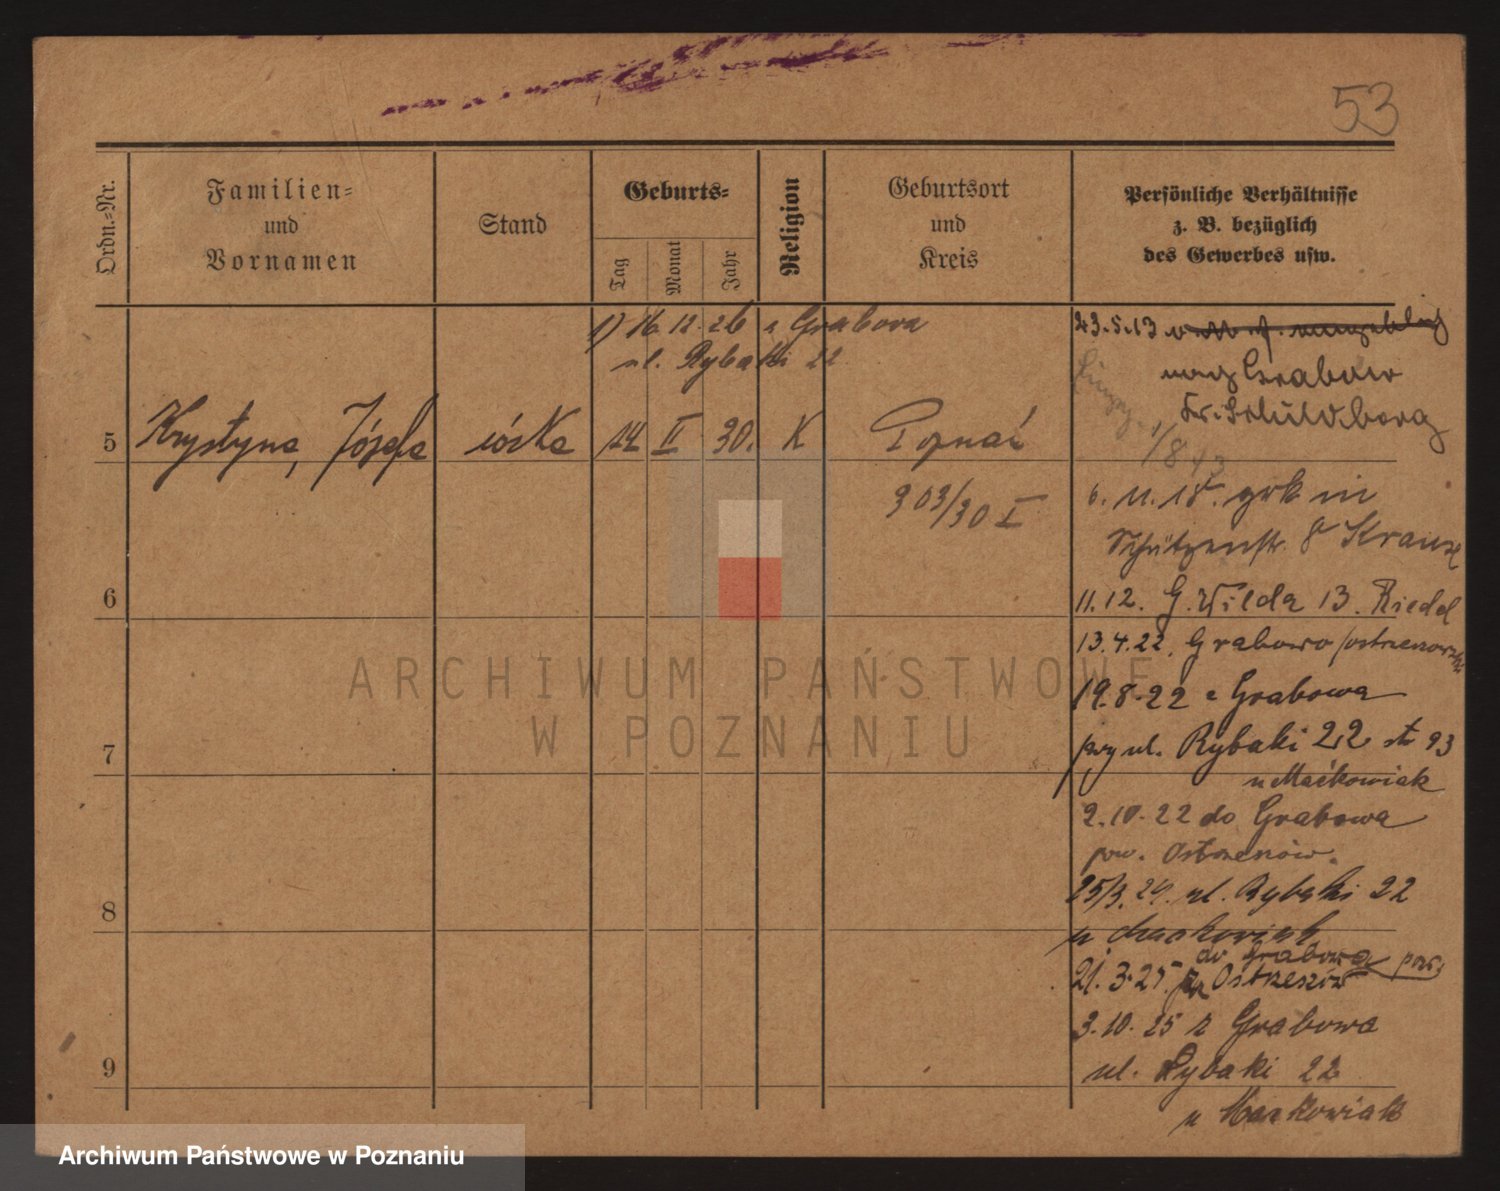 53
Ordn.-Nr.
Familien-
und
Vornamen
Stand
Geburts-
Tag
Monat
Jahr
Religion
Geburtsort
und
Kreis
Persönliche Verhältnisse
z. B. bezüglich
des Gewerbes usw.
1) 16.12.26 z Grabowa
ul. Rybaki 22
5 Krystyna, Józefa córka 14 II 30. K Poznań
303/30 I
6
7
8
9
23.5.13
nach Grabow
Kr. Schildberg
1/8 13
6.11.18.
Schützenstr. 8 Krause
11.12. G. Wilda 13. Riedel
13.4.22. Grabowo
19.8.22 z Grabowa
przy ul. Rybaki 22 st 93
u Maćkowiak
2.10.22 do Grabowa
pow. Ostrzeszów.
25/3.24. ul. Rybaki 22
u Mackowiak
do Grabowa pow.
21.3.25 Ostrzeszów
3.10.25 z Grabowa
ul. Rybaki 22
u Mackowiak
ARCHIWUM PAŃSTWOWE
W POZNANIU
Archiwum Państwowe w Poznaniu